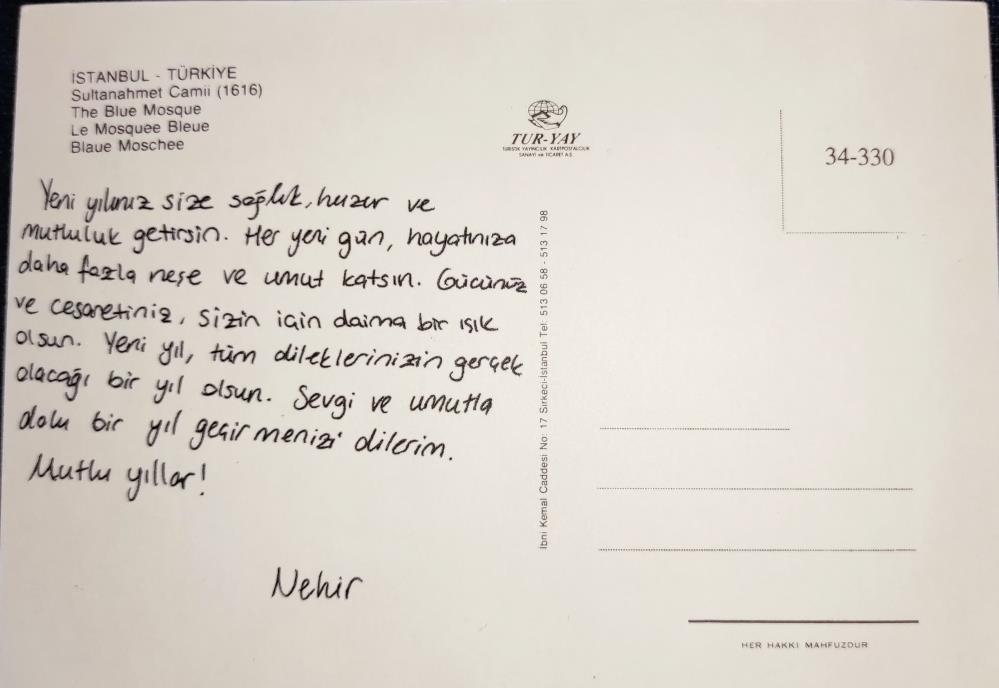 İSTANBUL - TÜRKİYE
Sultanahmet Camii (1616)
The Blue Mosque
Le Mosquee Bleue
Blaue Moschee
TUR-YAY
TURİSTİK YAYINCILIK KARTPOSTALCILIK
SANAYİ ve TİCARET A.Ş.
34-330
Yeni yılınız size sağlık, huzur ve
mutluluk getirsin. Her yeni gün, hayatınıza
daha fazla neşe ve umut katsın. Gücünüz
ve cesaretiniz, sizin için daima bir ışık
olsun. Yeni yıl, tüm dileklerinizin gerçek
olacağı bir yıl olsun. Sevgi ve umutla
dolu bir yıl geçirmenizi dilerim.
Mutlu yıllar!
Nehir
İbni Kemal Caddesi No: 17 Sirkeci-İstanbul Tel: 513 06 58 - 513 17 98
HER HAKKI MAHFUZDUR